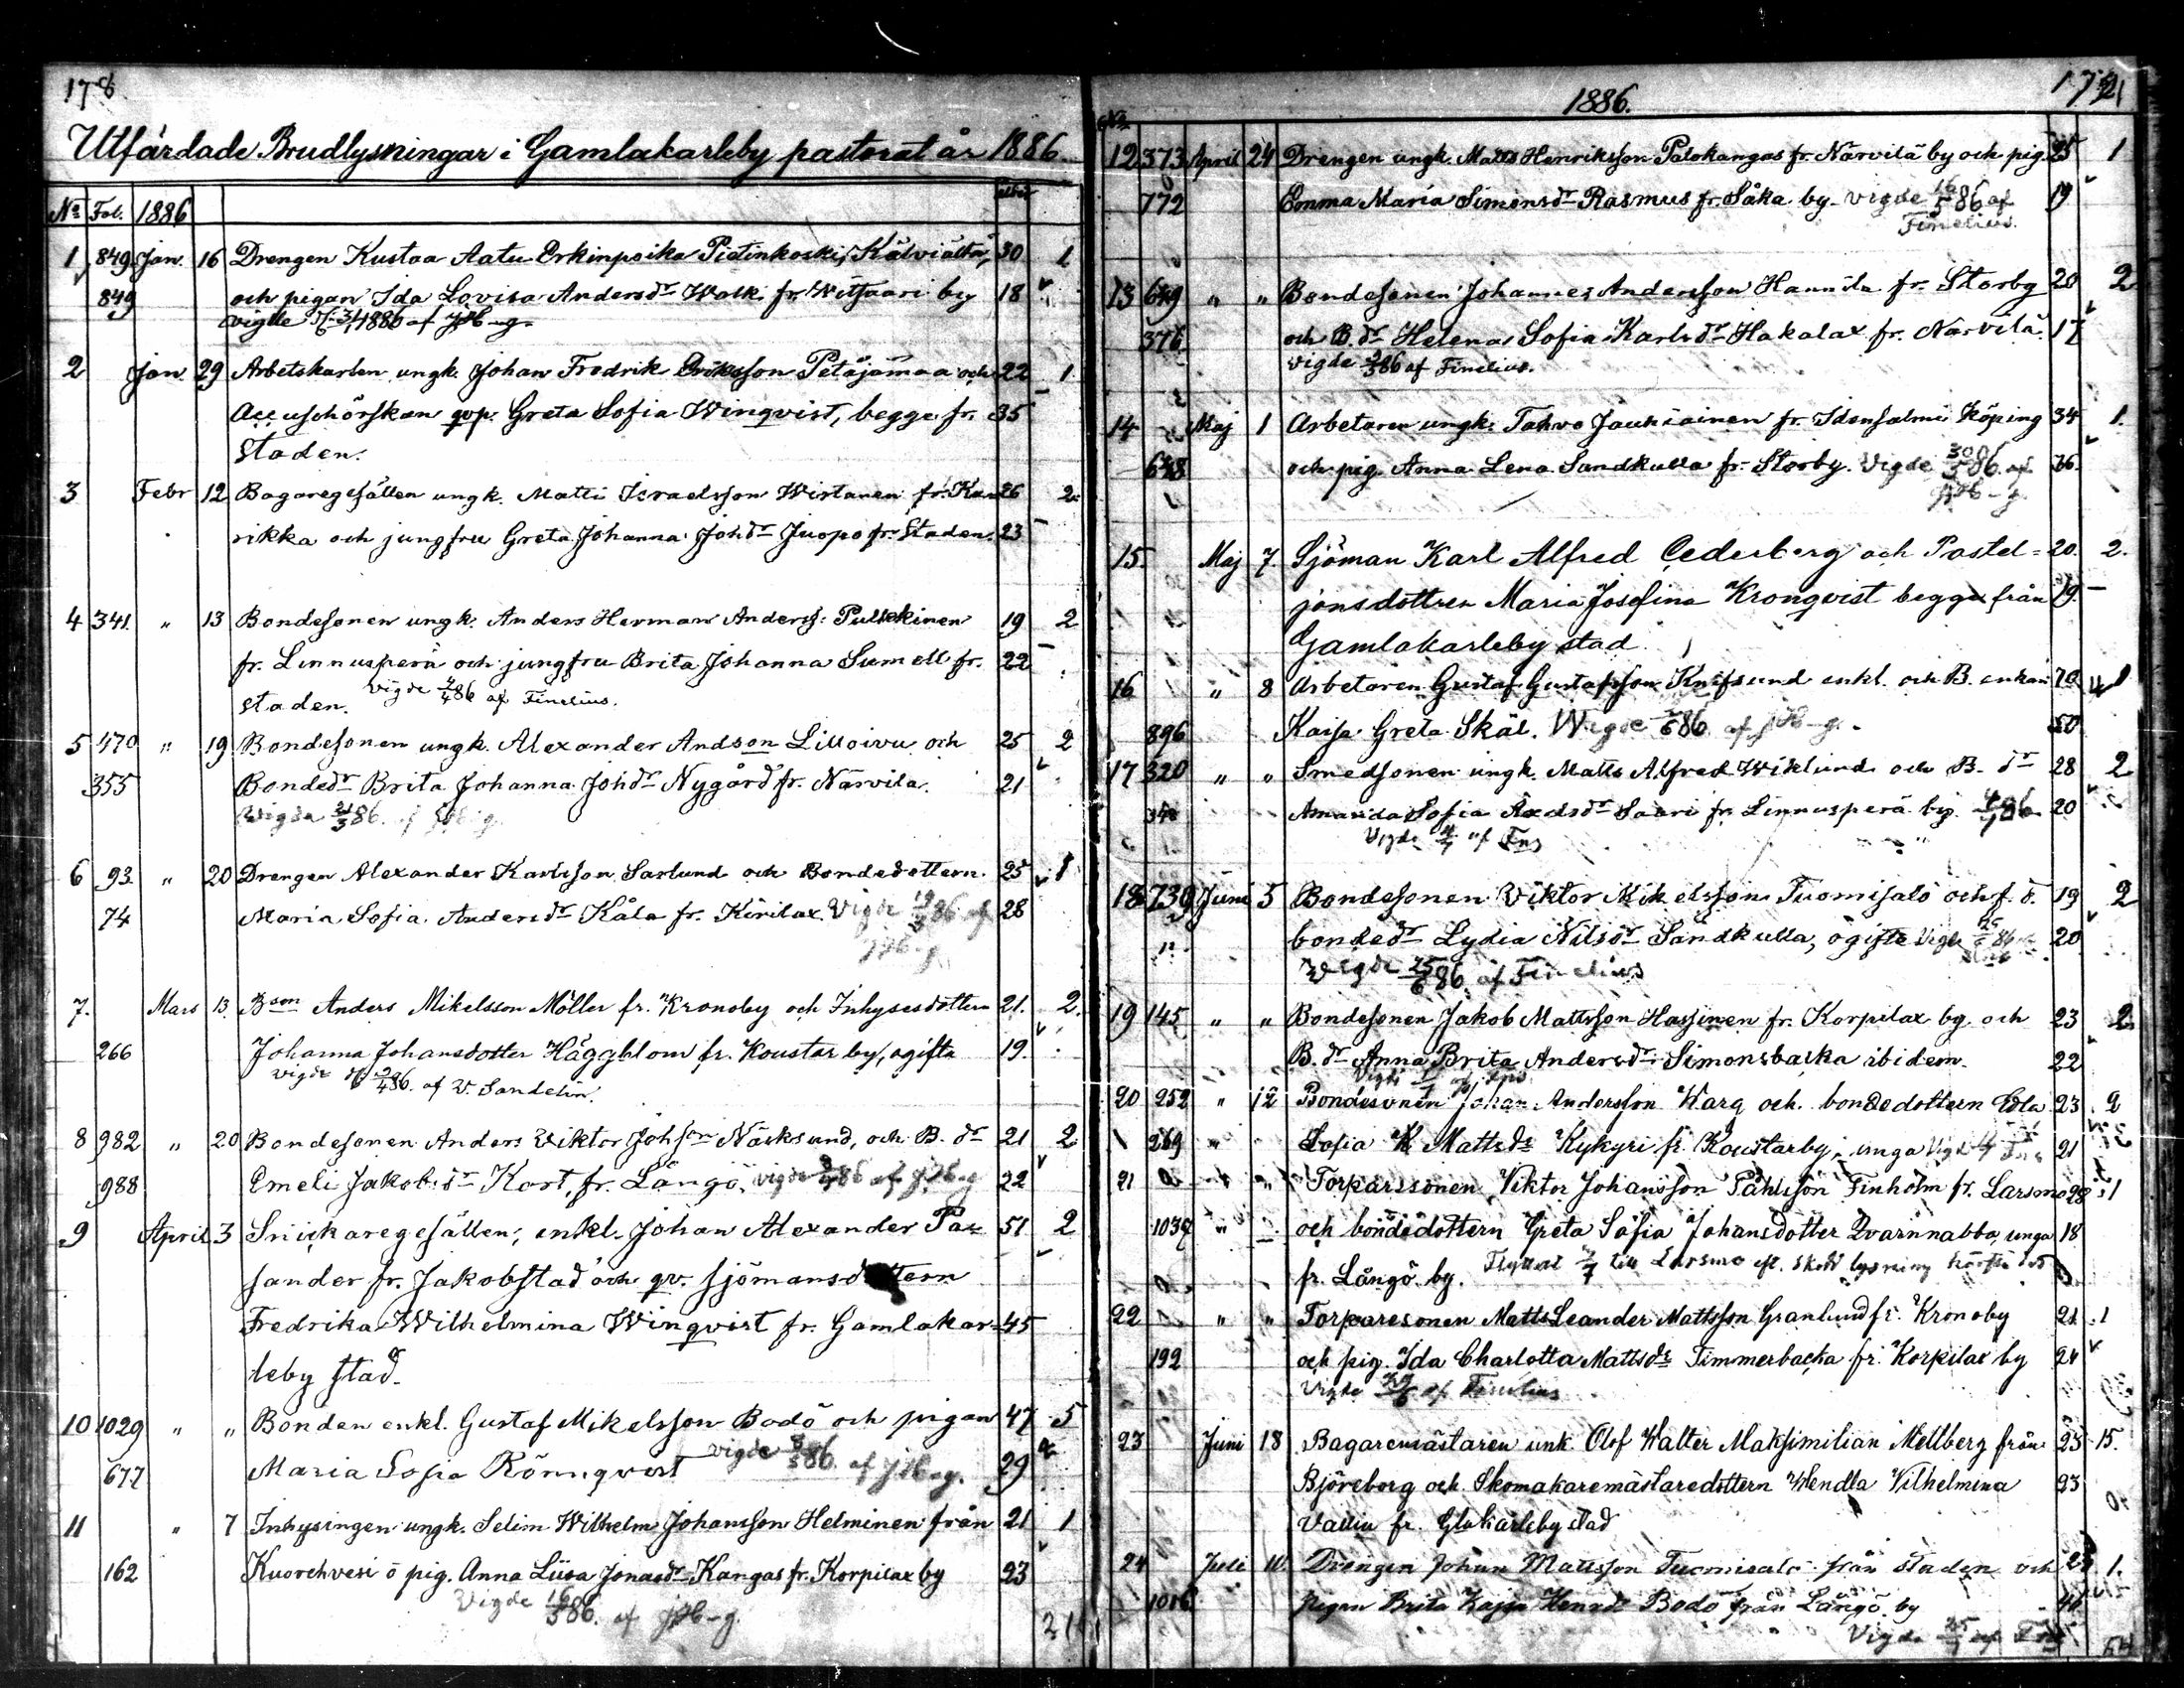 178
Utfärdade Brudlysningar i Gamlakarleby pastorat år 1886
No Fol. 1886
1 849 Jan. 16 Drengen Kustaa Aatu Erkinpoika Pietinkoski, Kälviältä, 30 1
849 och pigan Ida Lovisa Andersdr Walk fr. Witsaari by 18
vigde 1886 af
2 Jan. 29 Arbetskarlen ungk. Johan Fredrik Eriksson Petäjämaa och 22 1
qvp. Greta Sofia Winqvist, begge fr. 35
staden.
3 Febr 12 Bagaregesällen ungk. Matti Israelsson Wirtanen fr. Kau 26 2
rikka och jungfru Greta Johanna Johdr Juopo fr. Staden. 23
4 341. " 13 Bondesonen ungk. Anders Herman Anderss: Pulkkinen 19 2
fr. Linnusperä och jungfru Brita Johanna Sumell fr. 22
staden. vigde 86 af Finelius.
5 470 " 19 Bondesonen ungk. Alexander Andson Lilloivu och 25 2
355 Bondedr Brita Johanna Johdr Nygård fr. Närvilä. 21
Vigda 21/3 86.
6 93. " 20 Drengen Alexander Karlsson Sarlund och Bondedottern 25 1
74 Maria Sofia Andersdr Kåla fr. Kirilax. Vigde 86 af 28
7. Mars 13. Bson Anders Mikelsson Möller fr. Kronoby och Inhysesdottern 21. 2.
266 Johanna Johansdotter Häggblom fr. Koustar by, ogifta 19.
vigde 86. af V. Sandelin.
8 982 " 20 Bondesonen Anders Viktor Johsson Näsksund, och B. dr 21 2
988 Emeli Jakobsdr Kort, fr. Långö, vigde 86 af 22
9 April 3 Snickaregesällen, enkl. Johan Alexander Pax 51 2
sander fr. Jakobstad och qv. sjömansdottern
Fredrika Wilhelmina Winqvist fr. Gamlakar- 45
leby stad.
10 1029 " " Bonden enkl. Gustaf Mikelsson Bodö och pigan 47 5
677 Maria Sofia Rönnqvist vigde 86. af 29
11 " 7 Inhysingen ungk. Selim Wilhelm Johansson Helminen från 21 1
162 Kuorehvesi o pig. Anna Liisa Jonasdr Kangas fr. Korpilax by 23
Vigde 16/5 86. af
1886.
No
12 373 April 24 Drengen ungk. Matts Henriksson Palokangas fr. Närvilä by och pig. 25 1
772 Emma Maria Simonsdr Rasmus fr. Såka by. vigde 16/5 86 af 19
Finelius.
13 649 " " Bondesonen Johannes Andersson Hannila fr. Storby 20 2
376 och B. dr Helena Sofia Karlsdr Hakalax fr. Närvilä. 17
vigde 86 af Finelius.
14 Maj 1 Arbetaren ungk. Tahvo Jauhiainen fr. Idensalmi Köping 34 1.
648 och pig. Anna Lena Sandkulla fr. Storby. Vigde 30/5 86. af 36.
15. Maj 7. Sjöman Karl Alfred Cederberg och Postel= 20. 2.
jonsdottren Maria Josefina Kronqvist begge från 19.
Gamlakarleby stad
16 " 8 Arbetaren Gustaf Gustafsson Knifsund enkl. och B. enkan 70 1
896 Kajsa Greta Skäl. Wigde 86. af 50
17 320 " " Smedsonen ungk. Matts Alfred Wiklund och B. dr 28 2
348 Amanda Sofia Axdsdr Saari fr. Linnusperä by. 20
Vigde af Fns
18 739 Juni 5 Bondesonen Viktor Mikelsson Tuomisalo och f. d. 19 2
bondedr Lydia Nilsdr Sandkulla, ogifta 20
Vigde 25/6 86. af Finelius
19 145 " " Bondesonen Jakob Mattsson Hassinen fr. Korpilax by och 23 2
B. dr Anna Brita Andersdr Simonsbacka ibidem. 22
20 252 " 12 Bondesonen Johan Andersson Warg och bondedottern Edla 23 2
269 Sofia Mattsdr Kykyri fr. Koustarby, unga 21
21 " " Torparesonen Viktor Johansson Påhlsson Finholm fr. Larsmo 28 1
1037 och bondedottern Greta Sofia Johansdotter Qvarnnabba, unga 18
fr. Långö by. Flyttat till Larsmo eft. skedd lysning
22 " " Torparesonen Matts Leander Mattsson Granlund fr. Kronoby 21 1
192 och pig. Ida Charlotta Mattsdr Timmerbacka fr. Korpilax by 24
Vigde af Finelius
23 Juni 18 Bagaremästaren unk. Olof Walter Maksimilian Mellberg från 23 15.
Björeborg och Skomakaremästaredottern Wendla Vilhelmina 23
Vallin fr. Glakarleby stad
24 Juli 10 Drengen Johan Mattsson Tuomisalo från Staden och 1.
1016 pigan Brita Kajsa Henrdr Bodö från Långö by
Vigde af